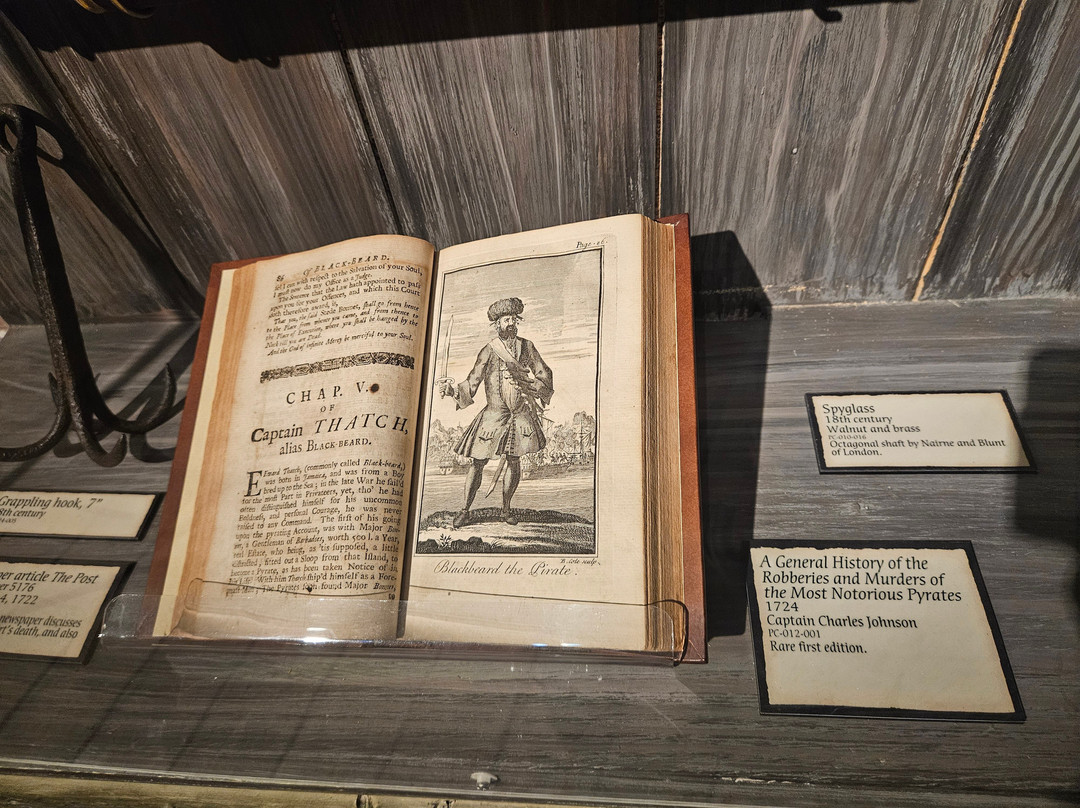 86 Of BLACK-BEARD.
with respect to the Salvation of your Soul,
I must now do my Office as a Judge.
The Sentence that the Law hath appointed to pass
upon you for your Offences, and which this Court
doth therefore award, is,
That you, the said Stede Bonnet, shall go from hence
to the Place from whence you came, and from thence to
the Place of Execution, where you shall be hanged by the
Neck till you are Dead.
And the God of infinite Mercy be merciful to your Soul.
CHAP. V.
OF
Captain THATCH,
alias BLACK-BEARD.
Edward Thatch, (commonly called Black-beard,)
was born in Jamaica, and was from a Boy
bred up to the Sea; in the late War he sail'd
for the most Part in Privateers, yet, tho' he had
often distinguished himself for his uncommon
Boldness, and personal Courage, he was never
raised to any Command. The first of his going
upon the pyrating Account, was with Major
a Gentleman of Barbadoes, worth 500 l. a Year,
Estate, who being, as 'tis supposed, a little
fitted out a Sloop from that Island, to
Pyrate, as has been taken Notice of in
With him Thatch ship'd himself as a Fore-
The Pyrates soon found Major
Page
B. Cole sculp.
Blackbeard the Pirate.
Spyglass
18th century
Walnut and brass
PC-010-016
Octagonal shaft by Nairne and Blunt
of London.
Grappling hook, 7"
8th century
er article The Post
er 5176
4, 1722
newspaper discusses
rt's death, and also
A General History of the
Robberies and Murders of
the Most Notorious Pyrates
1724
Captain Charles Johnson
PC-012-001
Rare first edition.